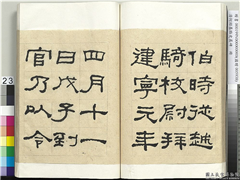 伯時從越
騎校尉拜
建寧元年
四月十一
日戊子到
官乃以令
23